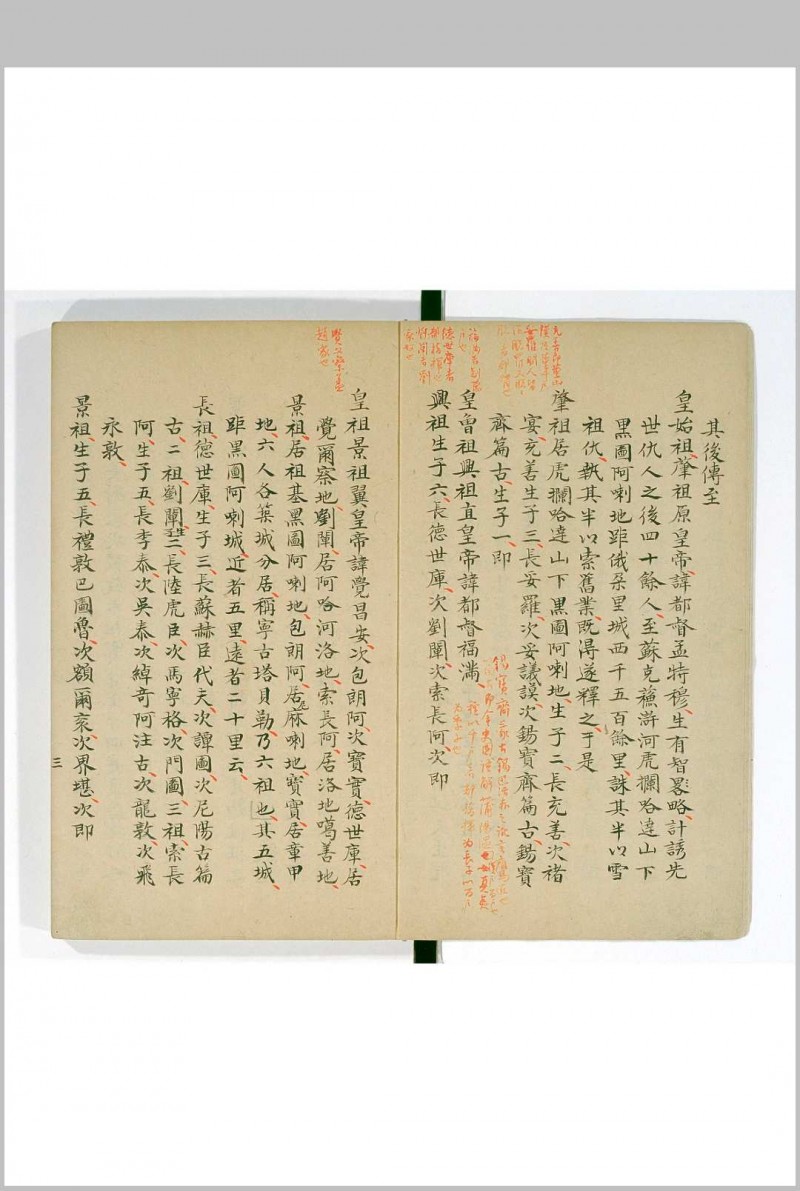 其後傳至
皇始祖肇祖原皇帝諱都督孟特穆生有智畧計誘先
世仇人之後四十餘人至蘇克蘓滸河虎攔哈達山下
黑圖阿喇地距俄朶里城西千五百餘里誅其半以雪
祖仇執其半以索舊業既得遂釋之于是
肇祖居虎攔哈達山下黑圖阿喇地生子二長充善次褚
宴充善生子三長妥羅次妥議謨次錫寶齊篇古錫寶
齊篇古生子一即
皇曾祖興祖直皇帝諱都督福滿
興祖生子六長德世庫次劉闡次索長阿次即
皇祖景祖翼皇帝諱覺昌安次包朗阿次寶實德世庫居
覺爾察地劉闡居阿哈河洛地索長阿居洛地噶善地
景祖居祖基黑圖阿喇地包朗阿居麻喇地寶實居章甲
地六人各築城分居稱寧古塔貝勒乃六祖也其五城
距黑圖阿喇城近者五里遠者二十里云
長祖德世庫生子三長蘇赫臣代夫次譚圖次尼陽古篇
古二祖劉闡生子三長陸虎臣次馬寧格次門圖三祖索長
阿生子五長李泰次吳泰次綽奇阿注古次龍敦次飛
永敦
景祖生子五長禮敦巴圖魯次額爾袞次界堪次即
三